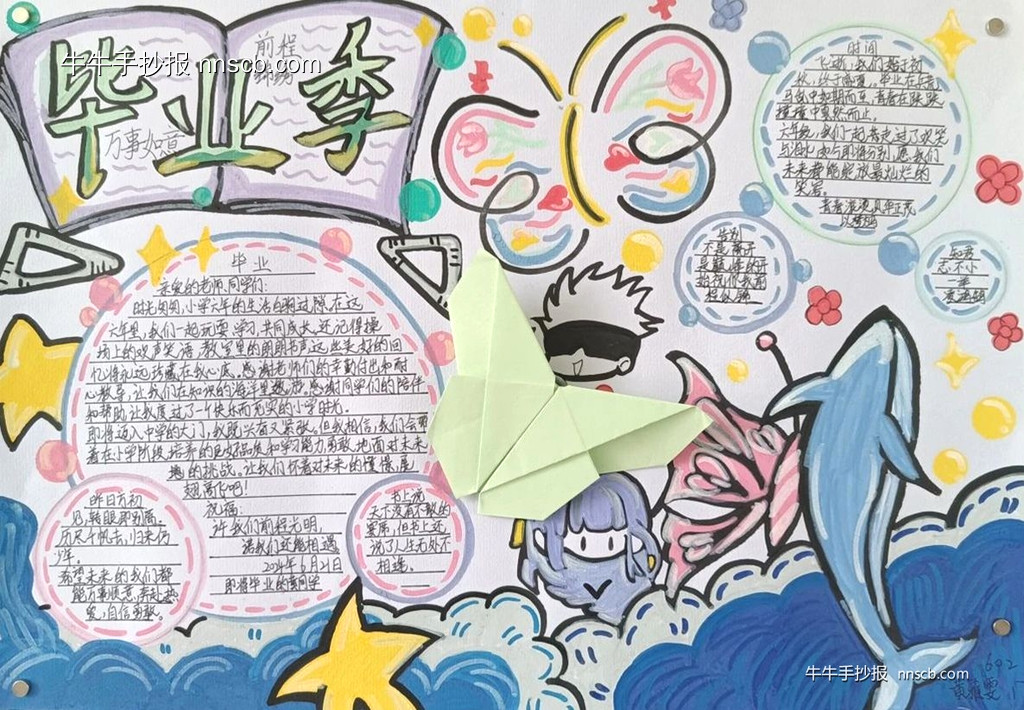 牛牛手抄报 nnscb.com
毕业季
前程
万事如意
时间
飞逝,我们携手前
六年级,我们一起走过了欢笑
与泪水,如今即将分别,愿我们
未来都能绽放最灿烂的
笑容。
告别
不是离开
毕业
亲爱的老师、同学们:
时光匆匆,小学六年的生活即将过隙,在这
六年里,我们一起玩耍、学习、共同成长,还记得操
场上的欢声笑语,教室里的朗朗书声,这些美好的回
忆将永远珍藏在我心底。感谢老师们的辛勤付出和耐
心教导,让我们在知识的海洋里遨游。感谢同学们的陪伴
和帮助,让我度过了一个快乐而充实的小学时光。
即将迈入中学的大门,我既兴奋又紧张。但我相信,我们会带
着在小学阶段培养的良好品质和学习能力,勇敢地面对未来
的挑战。让我们怀着对未来的憧憬,展
翅高飞吧!
祝福:
许我们前程光明,
愿我们还能相遇
2024年6月21日
即将毕业的黄同学
昨日方初
见,转眼即别离。
历尽千帆去,归来仍
少年。
希望未来的我们都
能万事顺意,奔赴热
爱,自信勇敢。
书上说
天下没有不散的
宴席,但书上还
说了人生何处不
相逢。
牛牛手抄报 nnscb.com